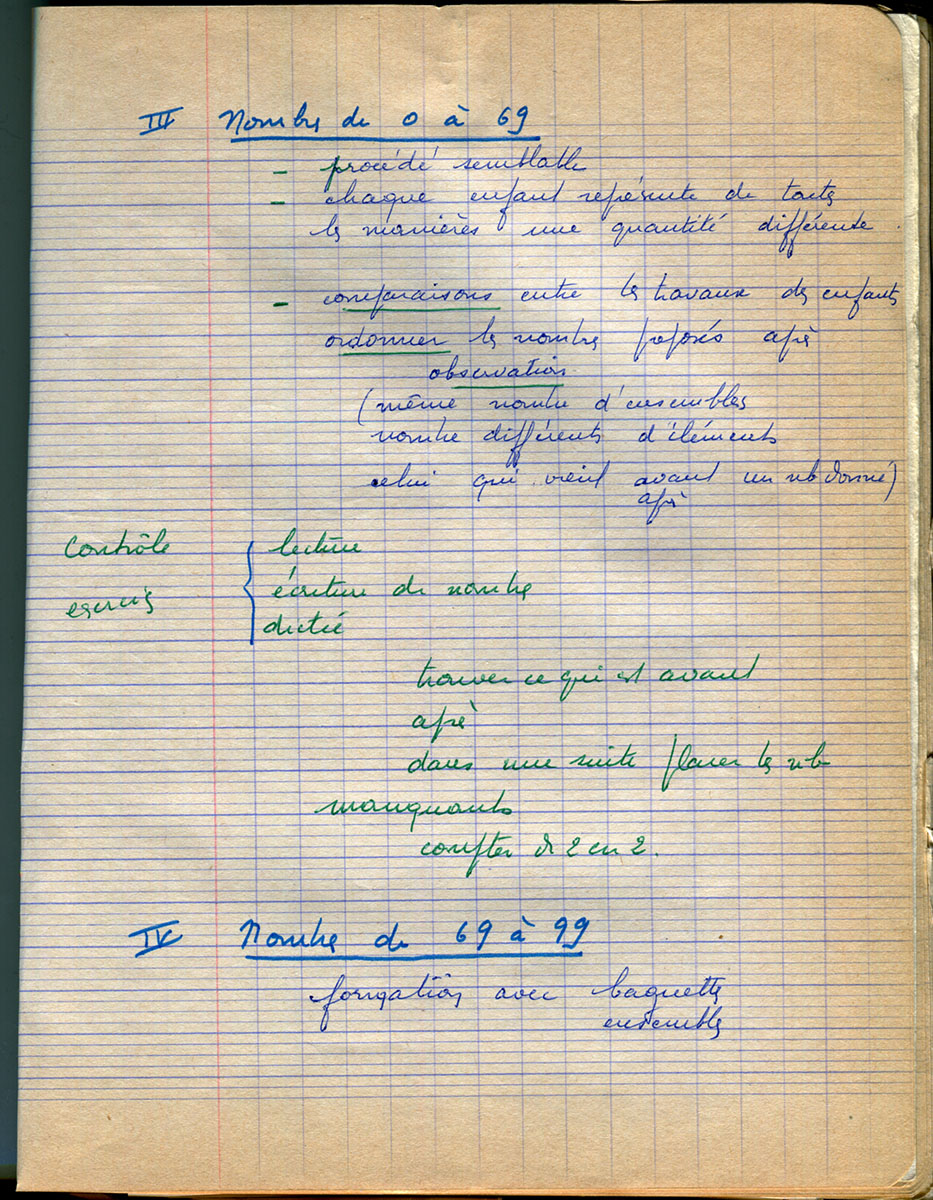 III Nombres de 0 à 69
- procédé semblable
- chaque enfant représente de toutes
les manières une quantité différente.
- comparaisons entre les travaux des enfants
ordonner les nombres proposés après
observation
(même nombre d'ensembles
nombre différents d'éléments
celui qui vient avant un nb donné)
après
Contrôle { lecture
écriture de nombres
exercices
dictée
trouver ce qui est avant
après
dans une suite placer les nb
manquants
compter de 2 en 2.
IV Nombres de 69 à 99
formation avec baguettes
ensembles